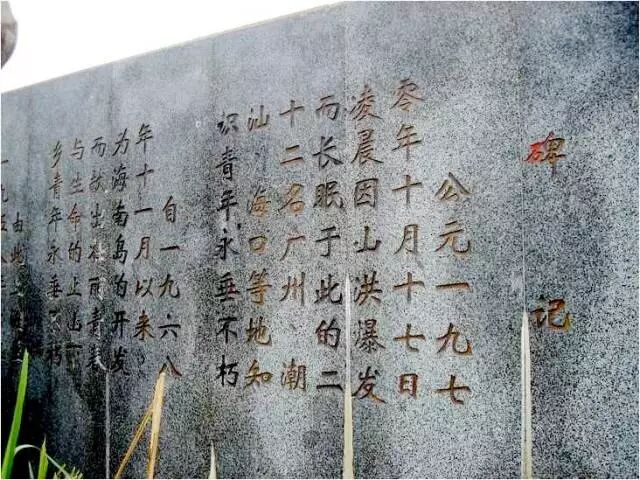 碑记
公元一九七
零年十月十七日
凌晨因山洪爆发
而长眠于此的二
十二名广州、潮
汕、海口等地知
识青年永垂不朽
自一九六八
年十一月以来，
为海南岛的开发
而献出丽青春
与生命的上山下
乡青年永垂不朽
由此
一九五八年